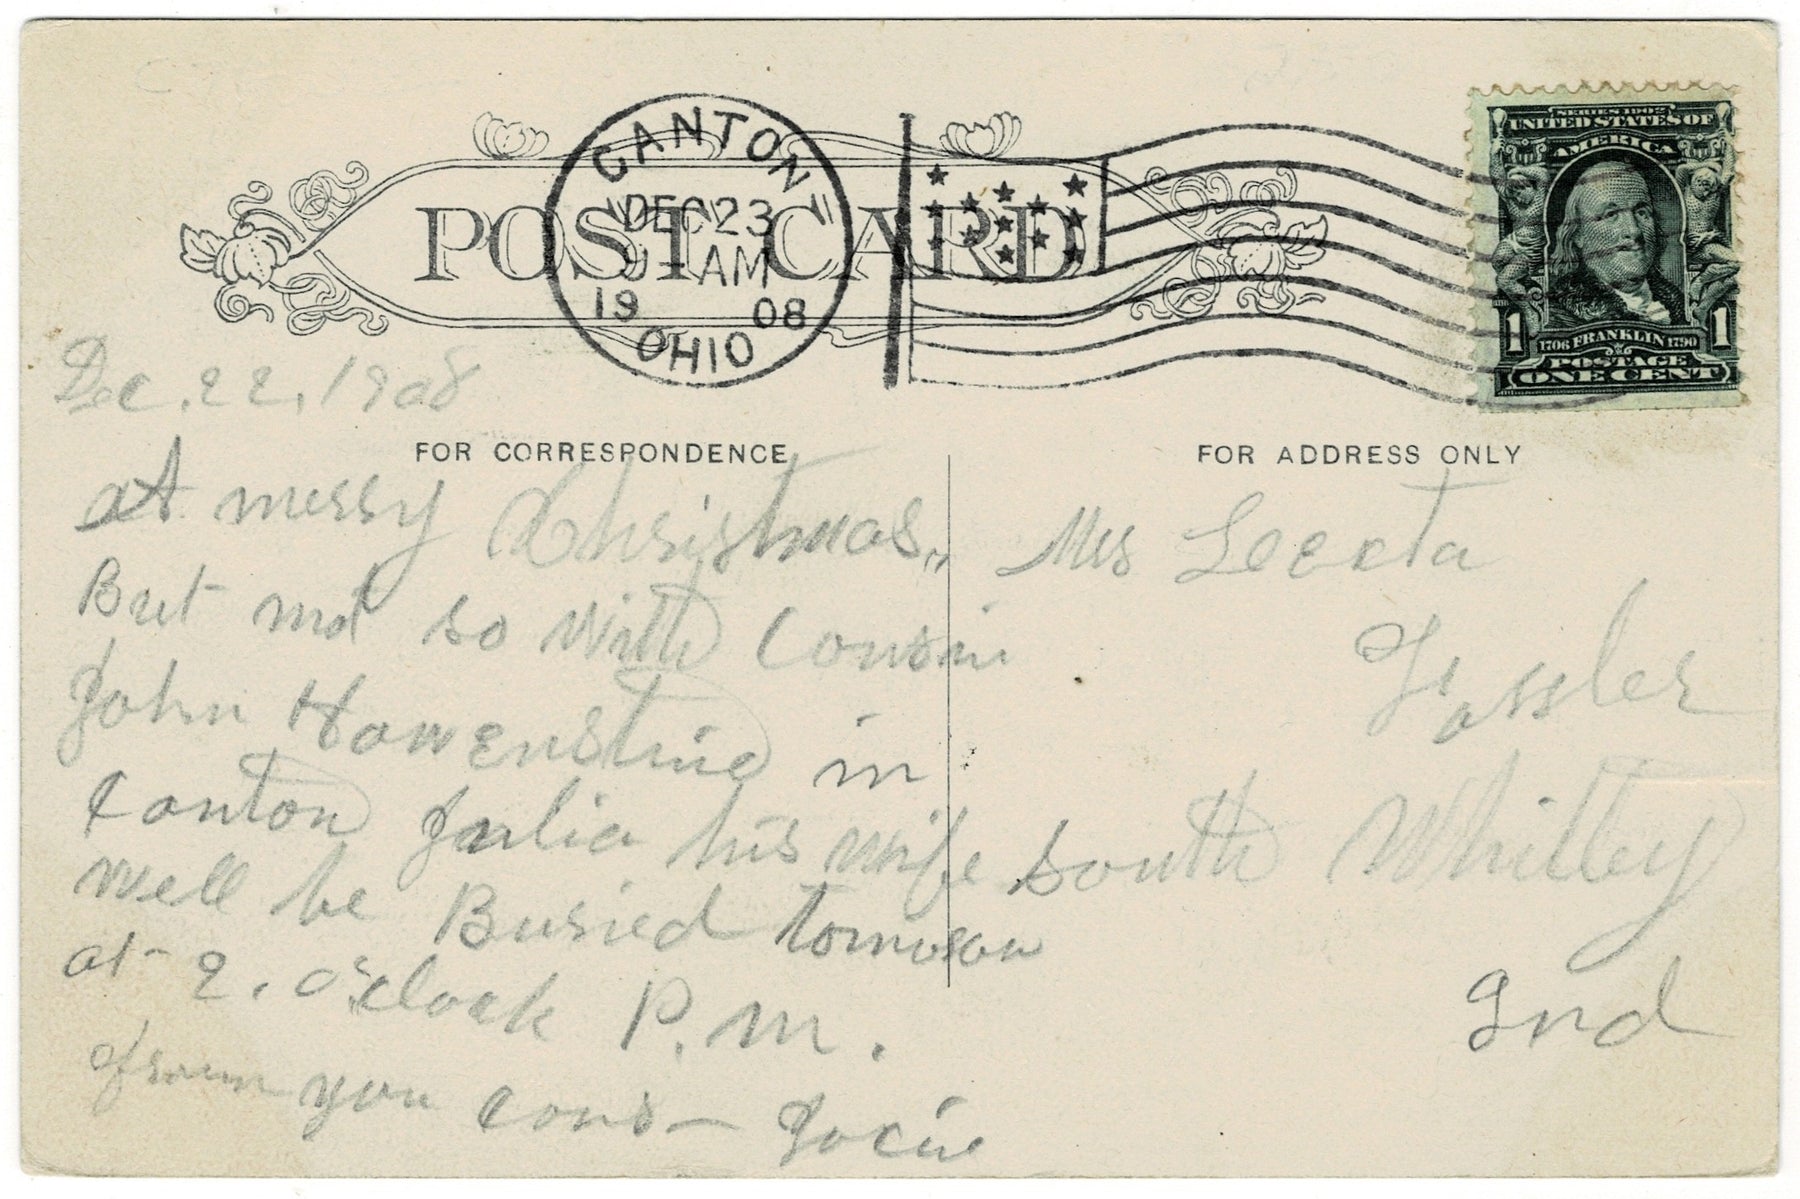 CANTON
DEC 23
AM
1908
OHIO
POST CARD
SERIES 1902
UNITED STATES OF
AMERICA
1 1706 FRANKLIN 1790 1
POSTAGE
ONE CENT
Dec. 22, 1908
FOR CORRESPONDENCE
at merry Christmas,,
But not so with Cousin
John Howenstine in
Canton Julia his wife
well be Buried tomorow
at 2. O'clock P.M.
from you cous —
FOR ADDRESS ONLY
Mrs
South Whitley
Ind